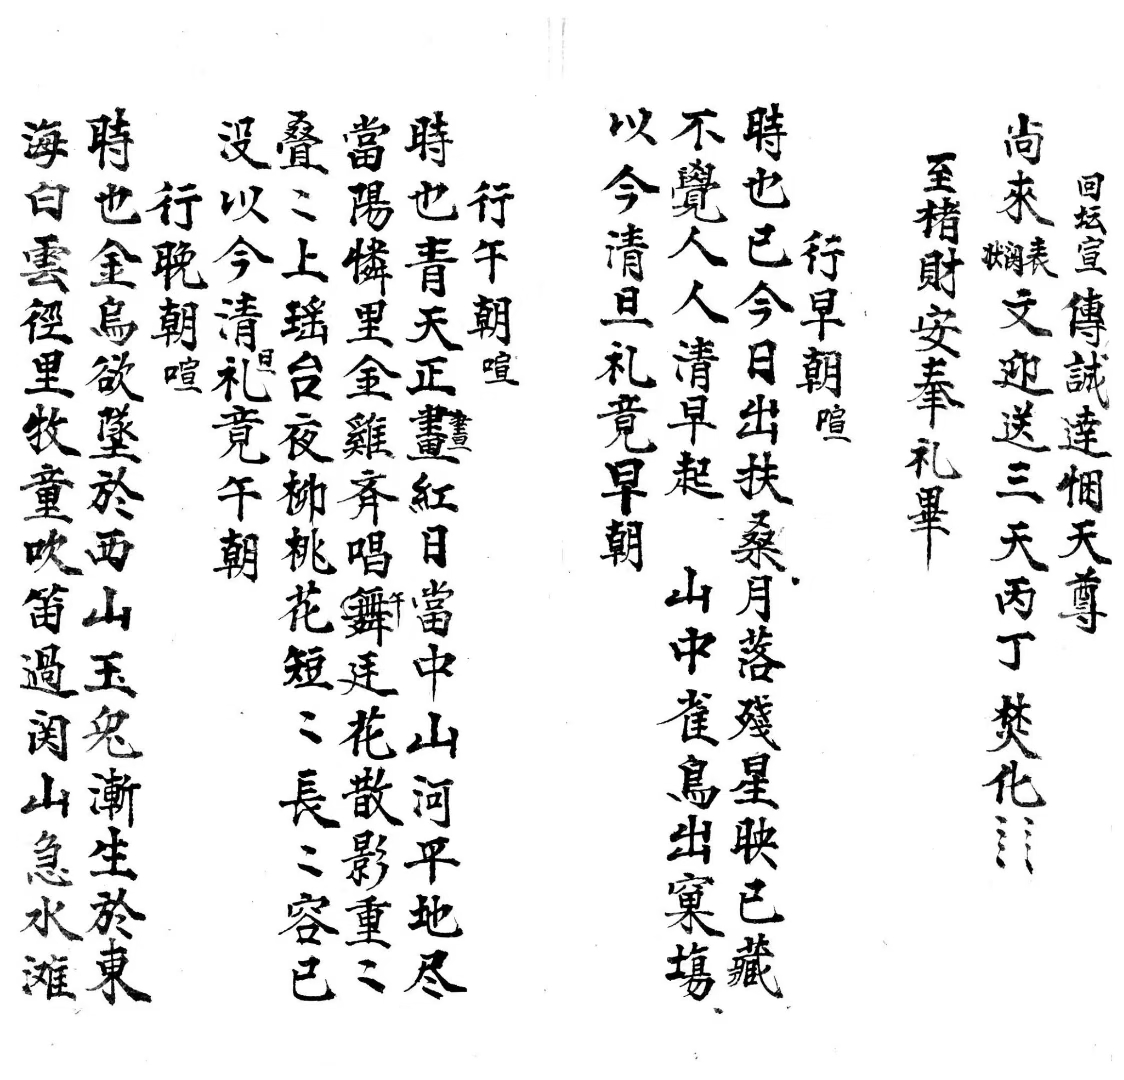 回坛宣傳誠達悃天尊
尚來表関狀文迎送三天丙丁焚化
至楮財安奉礼畢
行早朝喧
時也已今日出扶桑月落殘星映已藏
不覺人人清早起 山中雀鳥出窠塲
以今清旦礼竟早朝
行午朝喧
時也青天正晝畫紅日當中山河平地尽
當陽憐里金雞斉唱舞午廷花散影重〻
叠〻上瑶台夜柳桃花短〻長〻容已
没以今清旦礼竟午朝
行晩朝喧
時也金烏欲墜於西山玉兔漸生於東
海白雲徑里牧童吹笛過関山急水滩